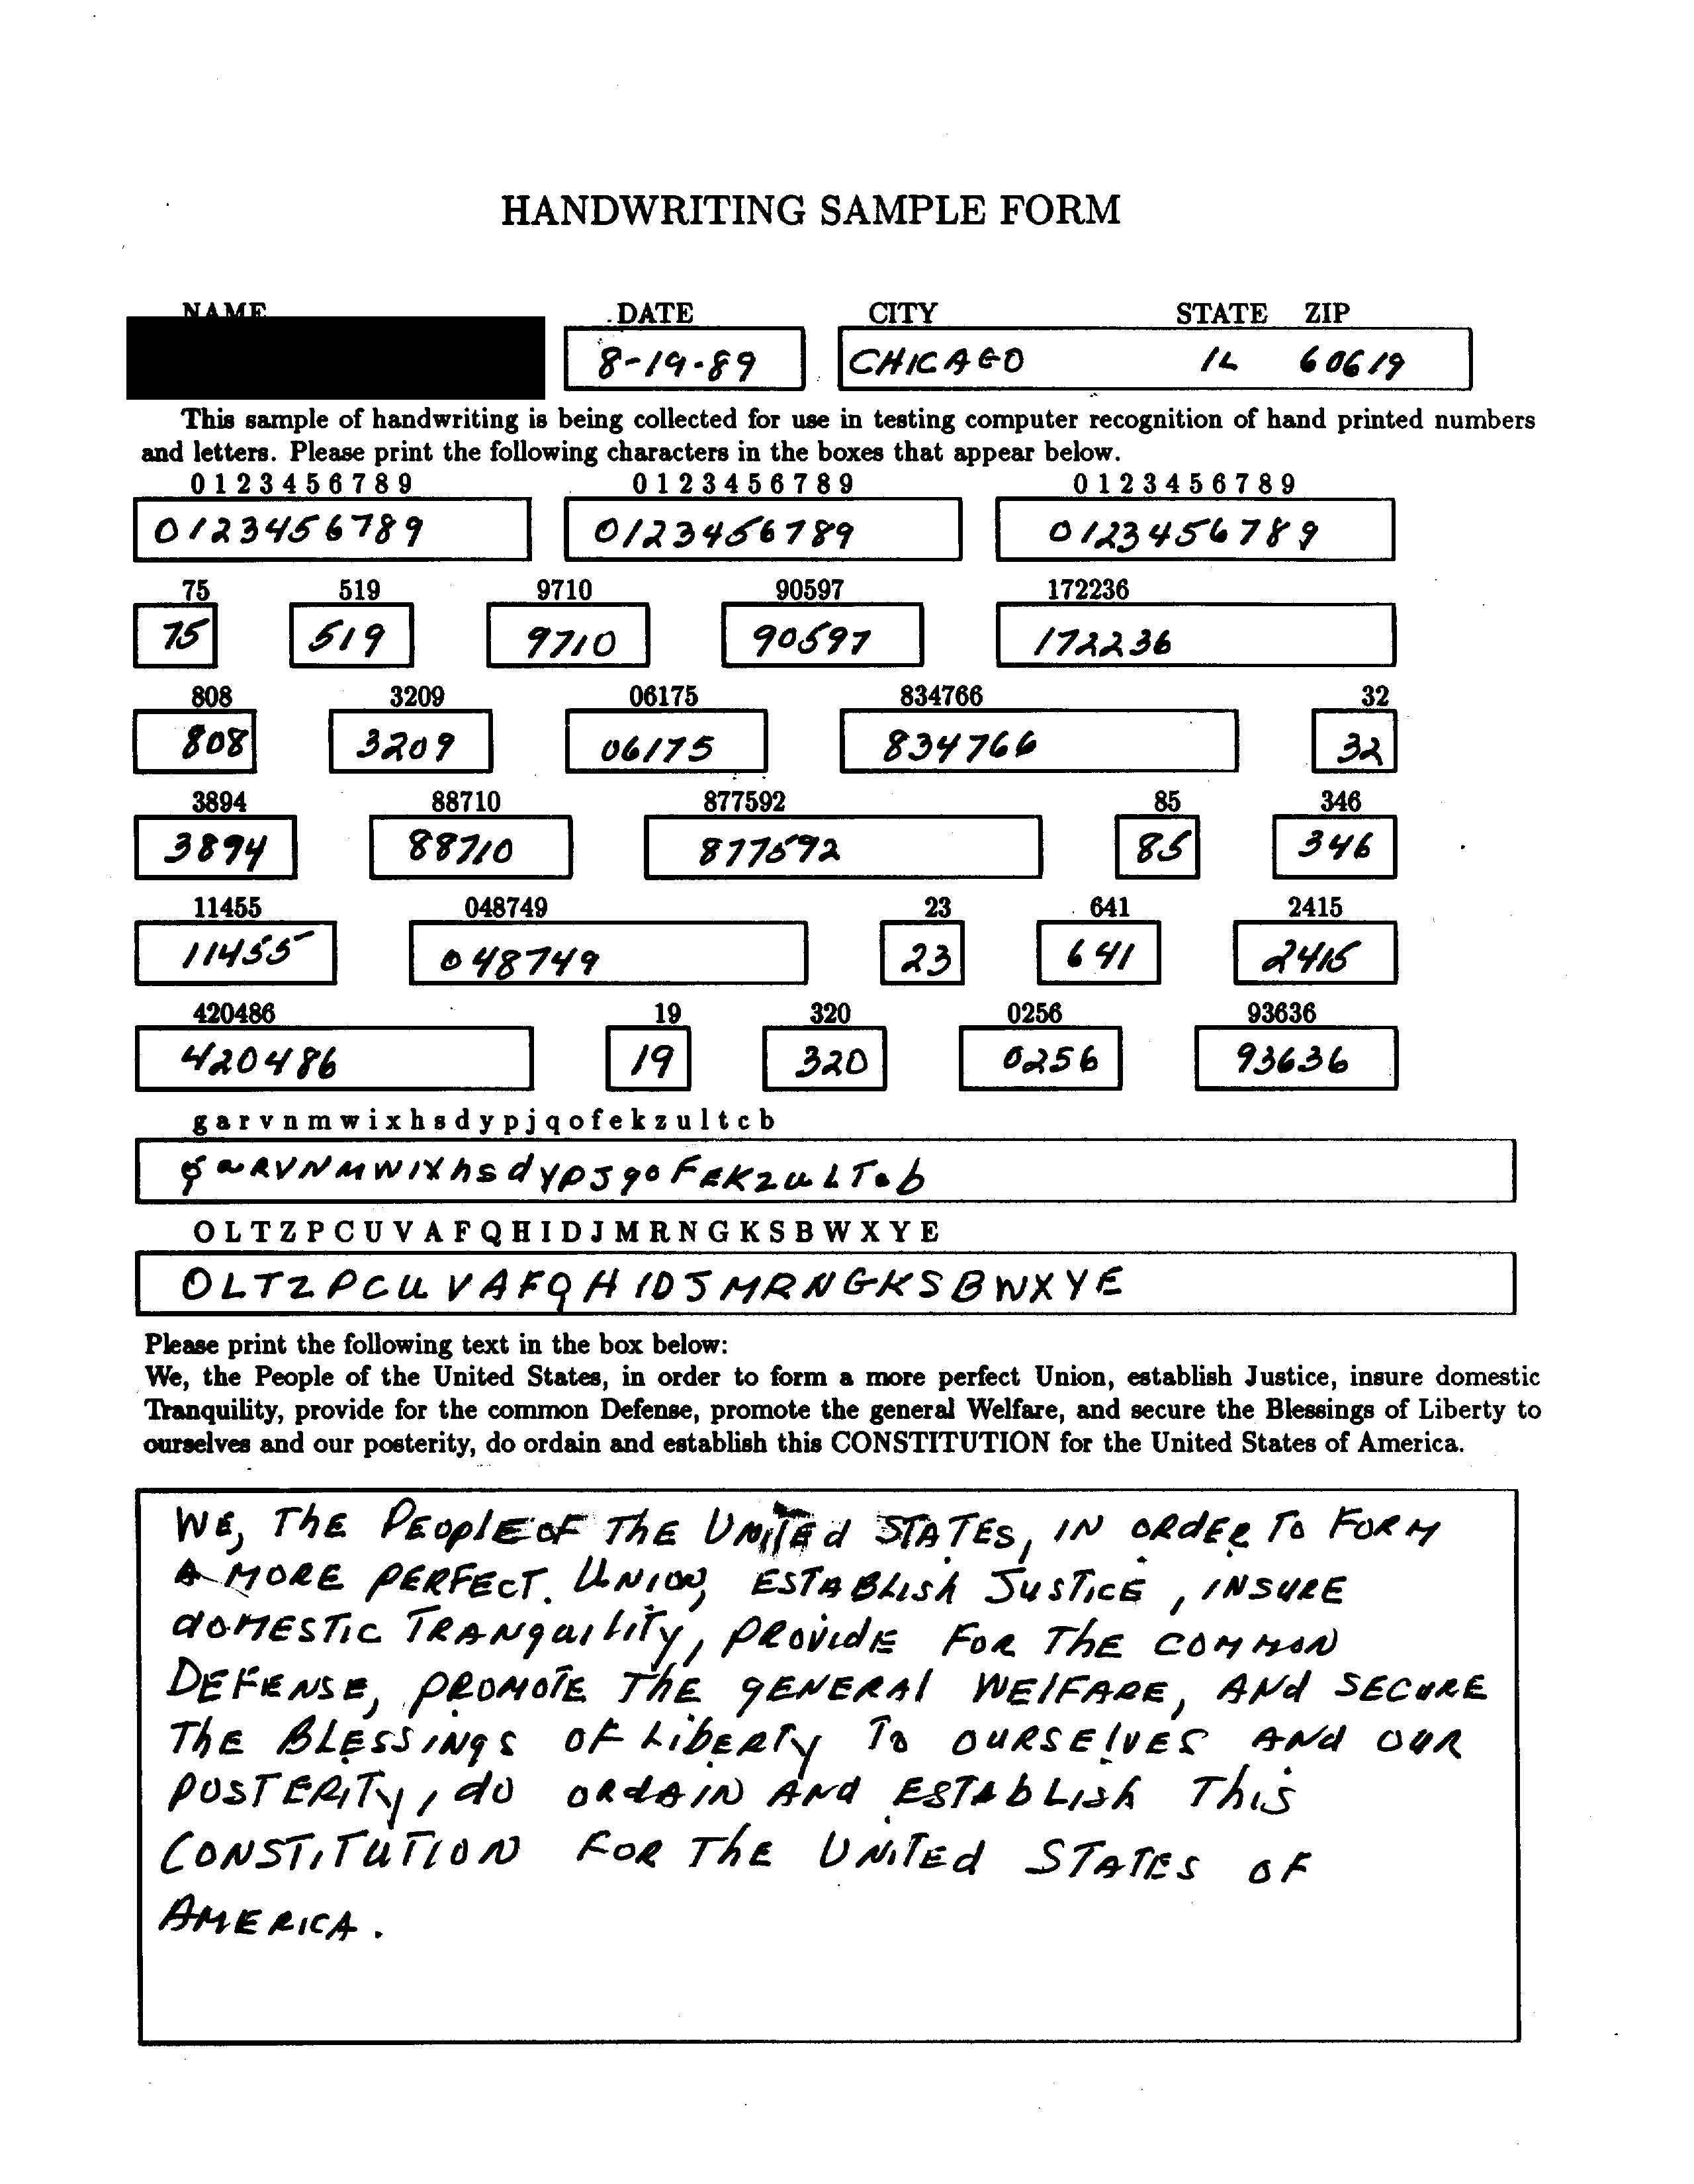 HANDWRITING SAMPLE FORM
NAME DATE CITY STATE ZIP
8-19-89 CHICAGO IL 60619
This sample of handwriting is being collected for use in testing computer recognition of hand printed numbers
and letters. Please print the following characters in the boxes that appear below.
0 1 2 3 4 5 6 7 8 9 0 1 2 3 4 5 6 7 8 9 0 1 2 3 4 5 6 7 8 9
0123456789 0123456789 0123456789
75 519 9710 90597 172236
75 519 9710 90597 172236
808 3209 06175 834766 32
808 3209 06175 834766 32
3894 88710 877592 85 346
3894 88710 877592 85 346
11455 048749 23 641 2415
11455 048749 23 641 2415
420486 19 320 0256 93636
420486 19 320 0256 93636
g a r v n m w i x h s d y p j q o f e k z u l t c b
gaRVNMWIXhsdypJqoFEKZuLTcb
O L T Z P C U V A F Q H I D J M R N G K S B W X Y E
OLTZPCUVAFQHIDJMRNGKSBWXYE
Please print the following text in the box below:
We, the People of the United States, in order to form a more perfect Union, establish Justice, insure domestic
Tranquility, provide for the common Defense, promote the general Welfare, and secure the Blessings of Liberty to
ourselves and our posterity, do ordain and establish this CONSTITUTION for the United States of America.
WE, ThE PEOplE OF ThE UNITEd STATES, IN ORdER TO FORM
A MORE PERFECT. UNION, ESTABLISh JUSTICE, INSURE
dOMESTIC TRANquiLiTy, PROVIdE FOR ThE COMMON
DEFENSE, PROMOTE ThE gENERAl WElFARE, ANd SECURE
ThE BLESSINgS OF LibERTy TO OURSElVES ANd OUR
POSTERITy, dO ORdAIN ANd ESTAbLISh ThiS
CONSTITUTION FOR ThE UNITEd STATES OF
AMERICA.